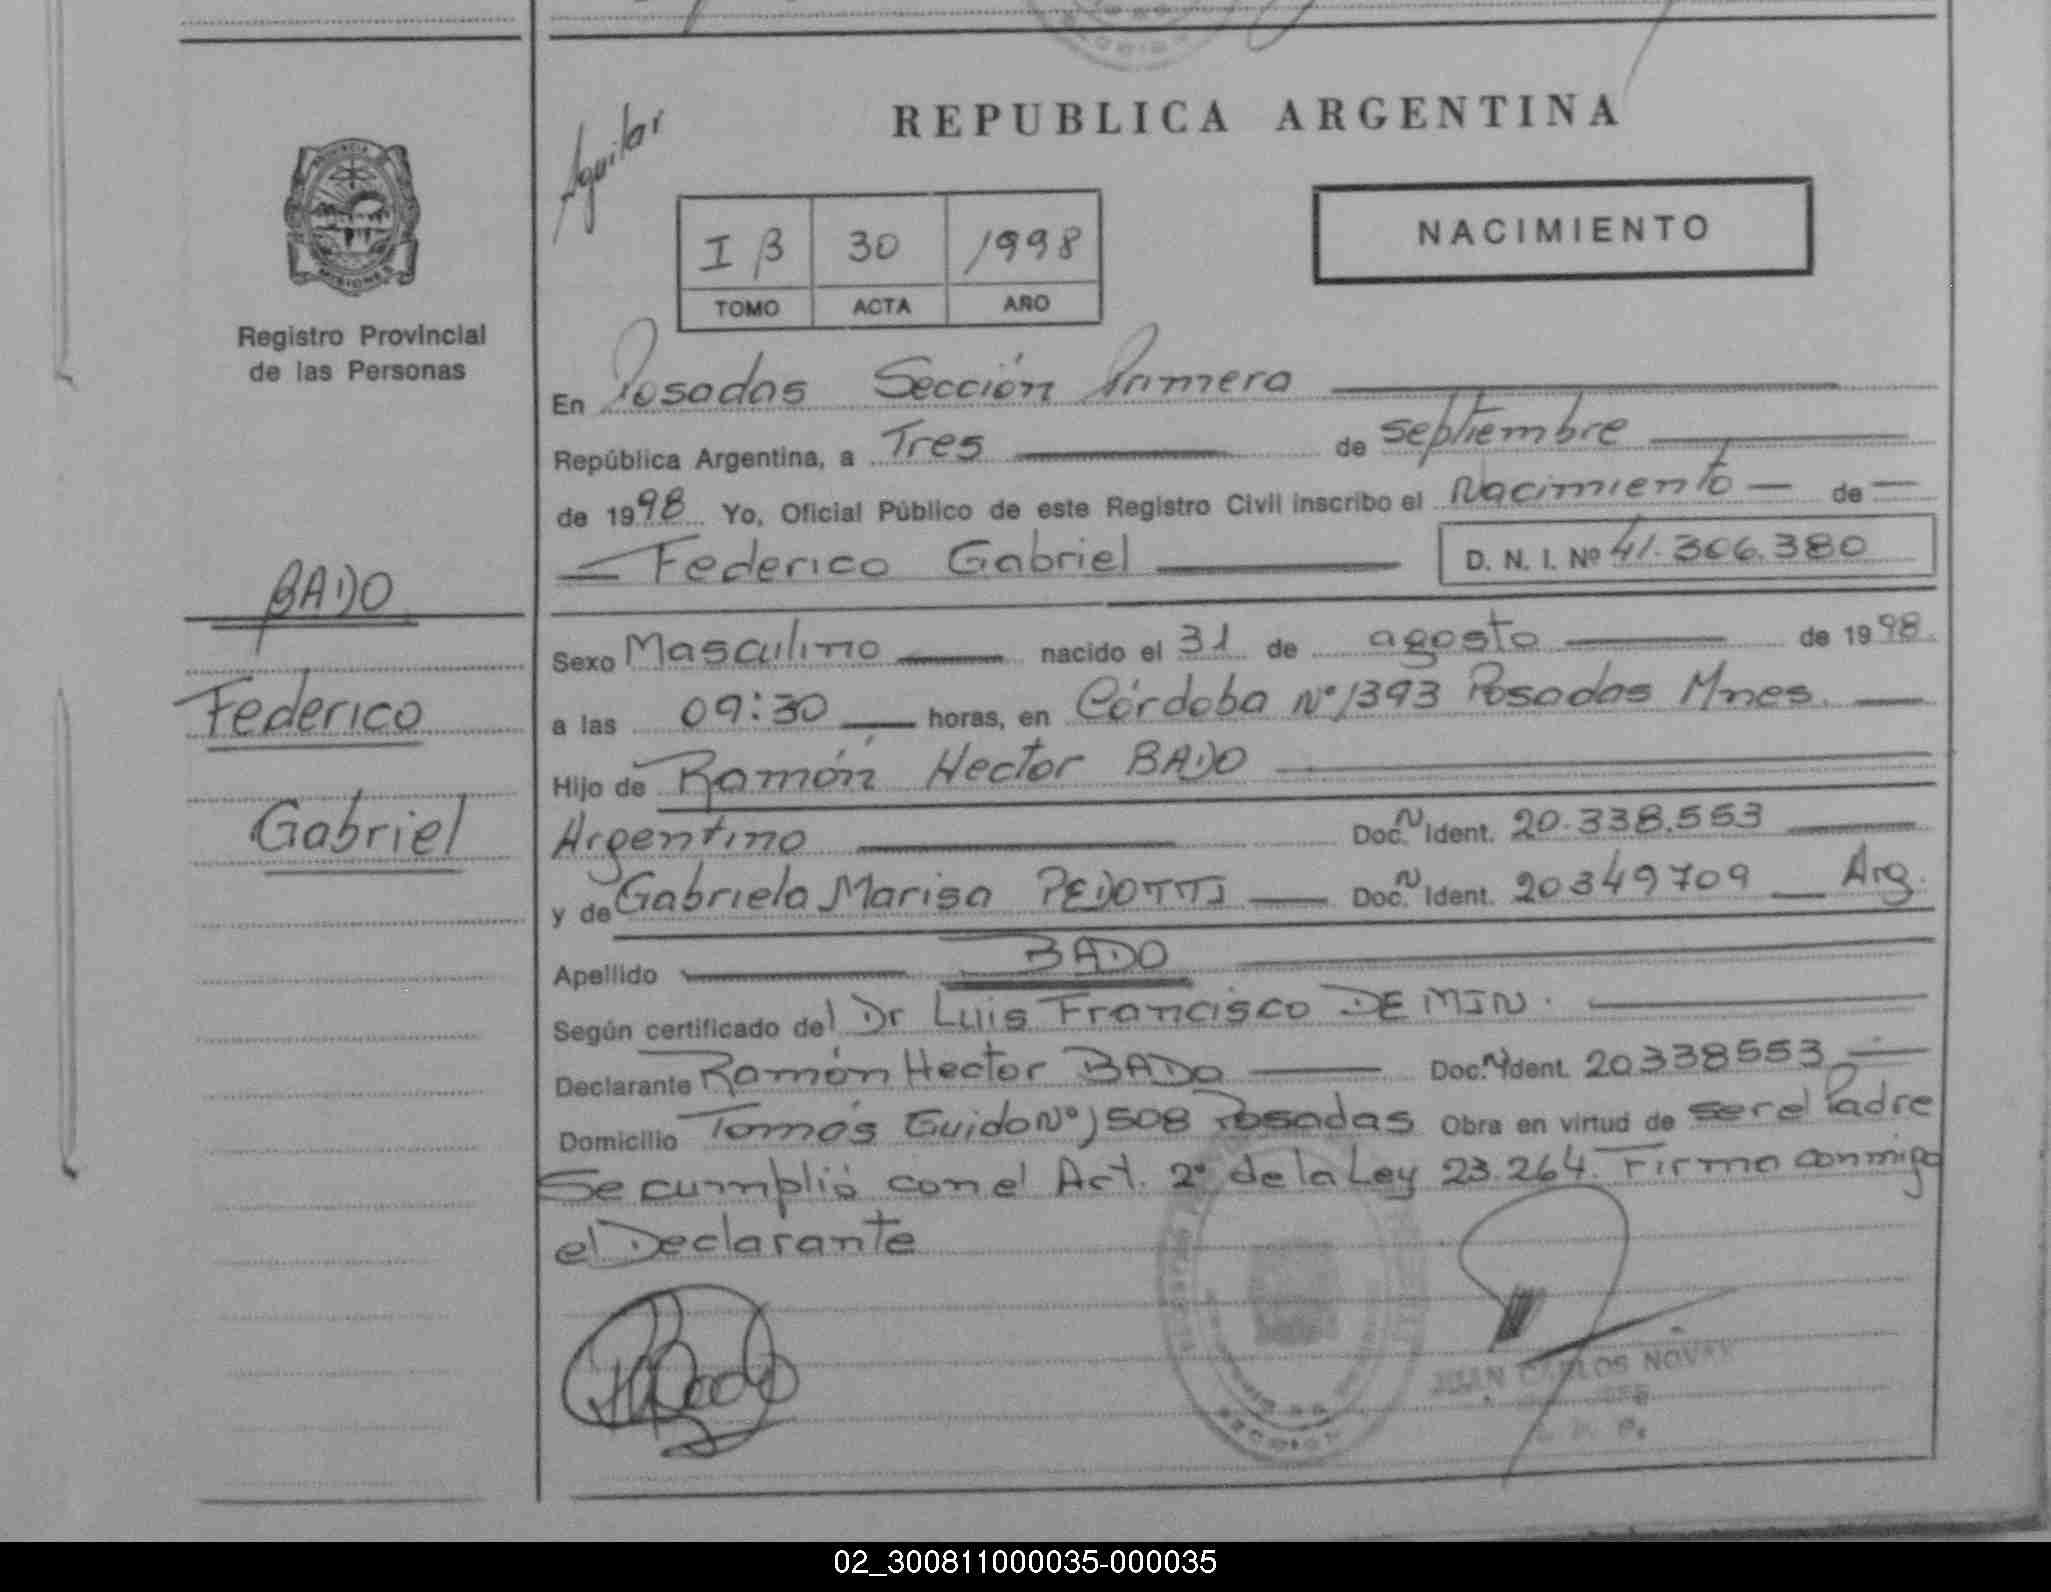 REPUBLICA ARGENTINA
Aguilar
PROVINCIA
MISIONES
Registro Provincial
de las Personas
I B 30 1998
TOMO ACTA AÑO
NACIMIENTO
En Posadas Sección Primera
República Argentina, a Tres de septiembre
de 1998 Yo, Oficial Público de este Registro Civil inscribo el Nacimiento — de —
Federico Gabriel D. N. I. Nº 41.306.380
BADO
Federico
Gabriel
Sexo Masculino nacido el 31 de agosto de 1998.
a las 09:30 horas, en Córdoba Nº 1393 Posadas Mnes.
Hijo de Ramón Hector BADO
Argentino Doc. N Ident. 20.338.553
y de Gabriela Marisa PEDOTTI Doc. N Ident. 20349709 Arg.
Apellido BADO
Según certificado del Dr Luis Francisco DE MIN.
Declarante Ramón Hector BADO Doc. N Ident. 20338553
Domicilio Tomás Guido Nº 1508 Posadas Obra en virtud de ser el Padre
Se cumplió con el Art. 2º de la Ley 23.264. Firma conmigo
el Declarante
JUAN CARLOS
02_300811000035-000035